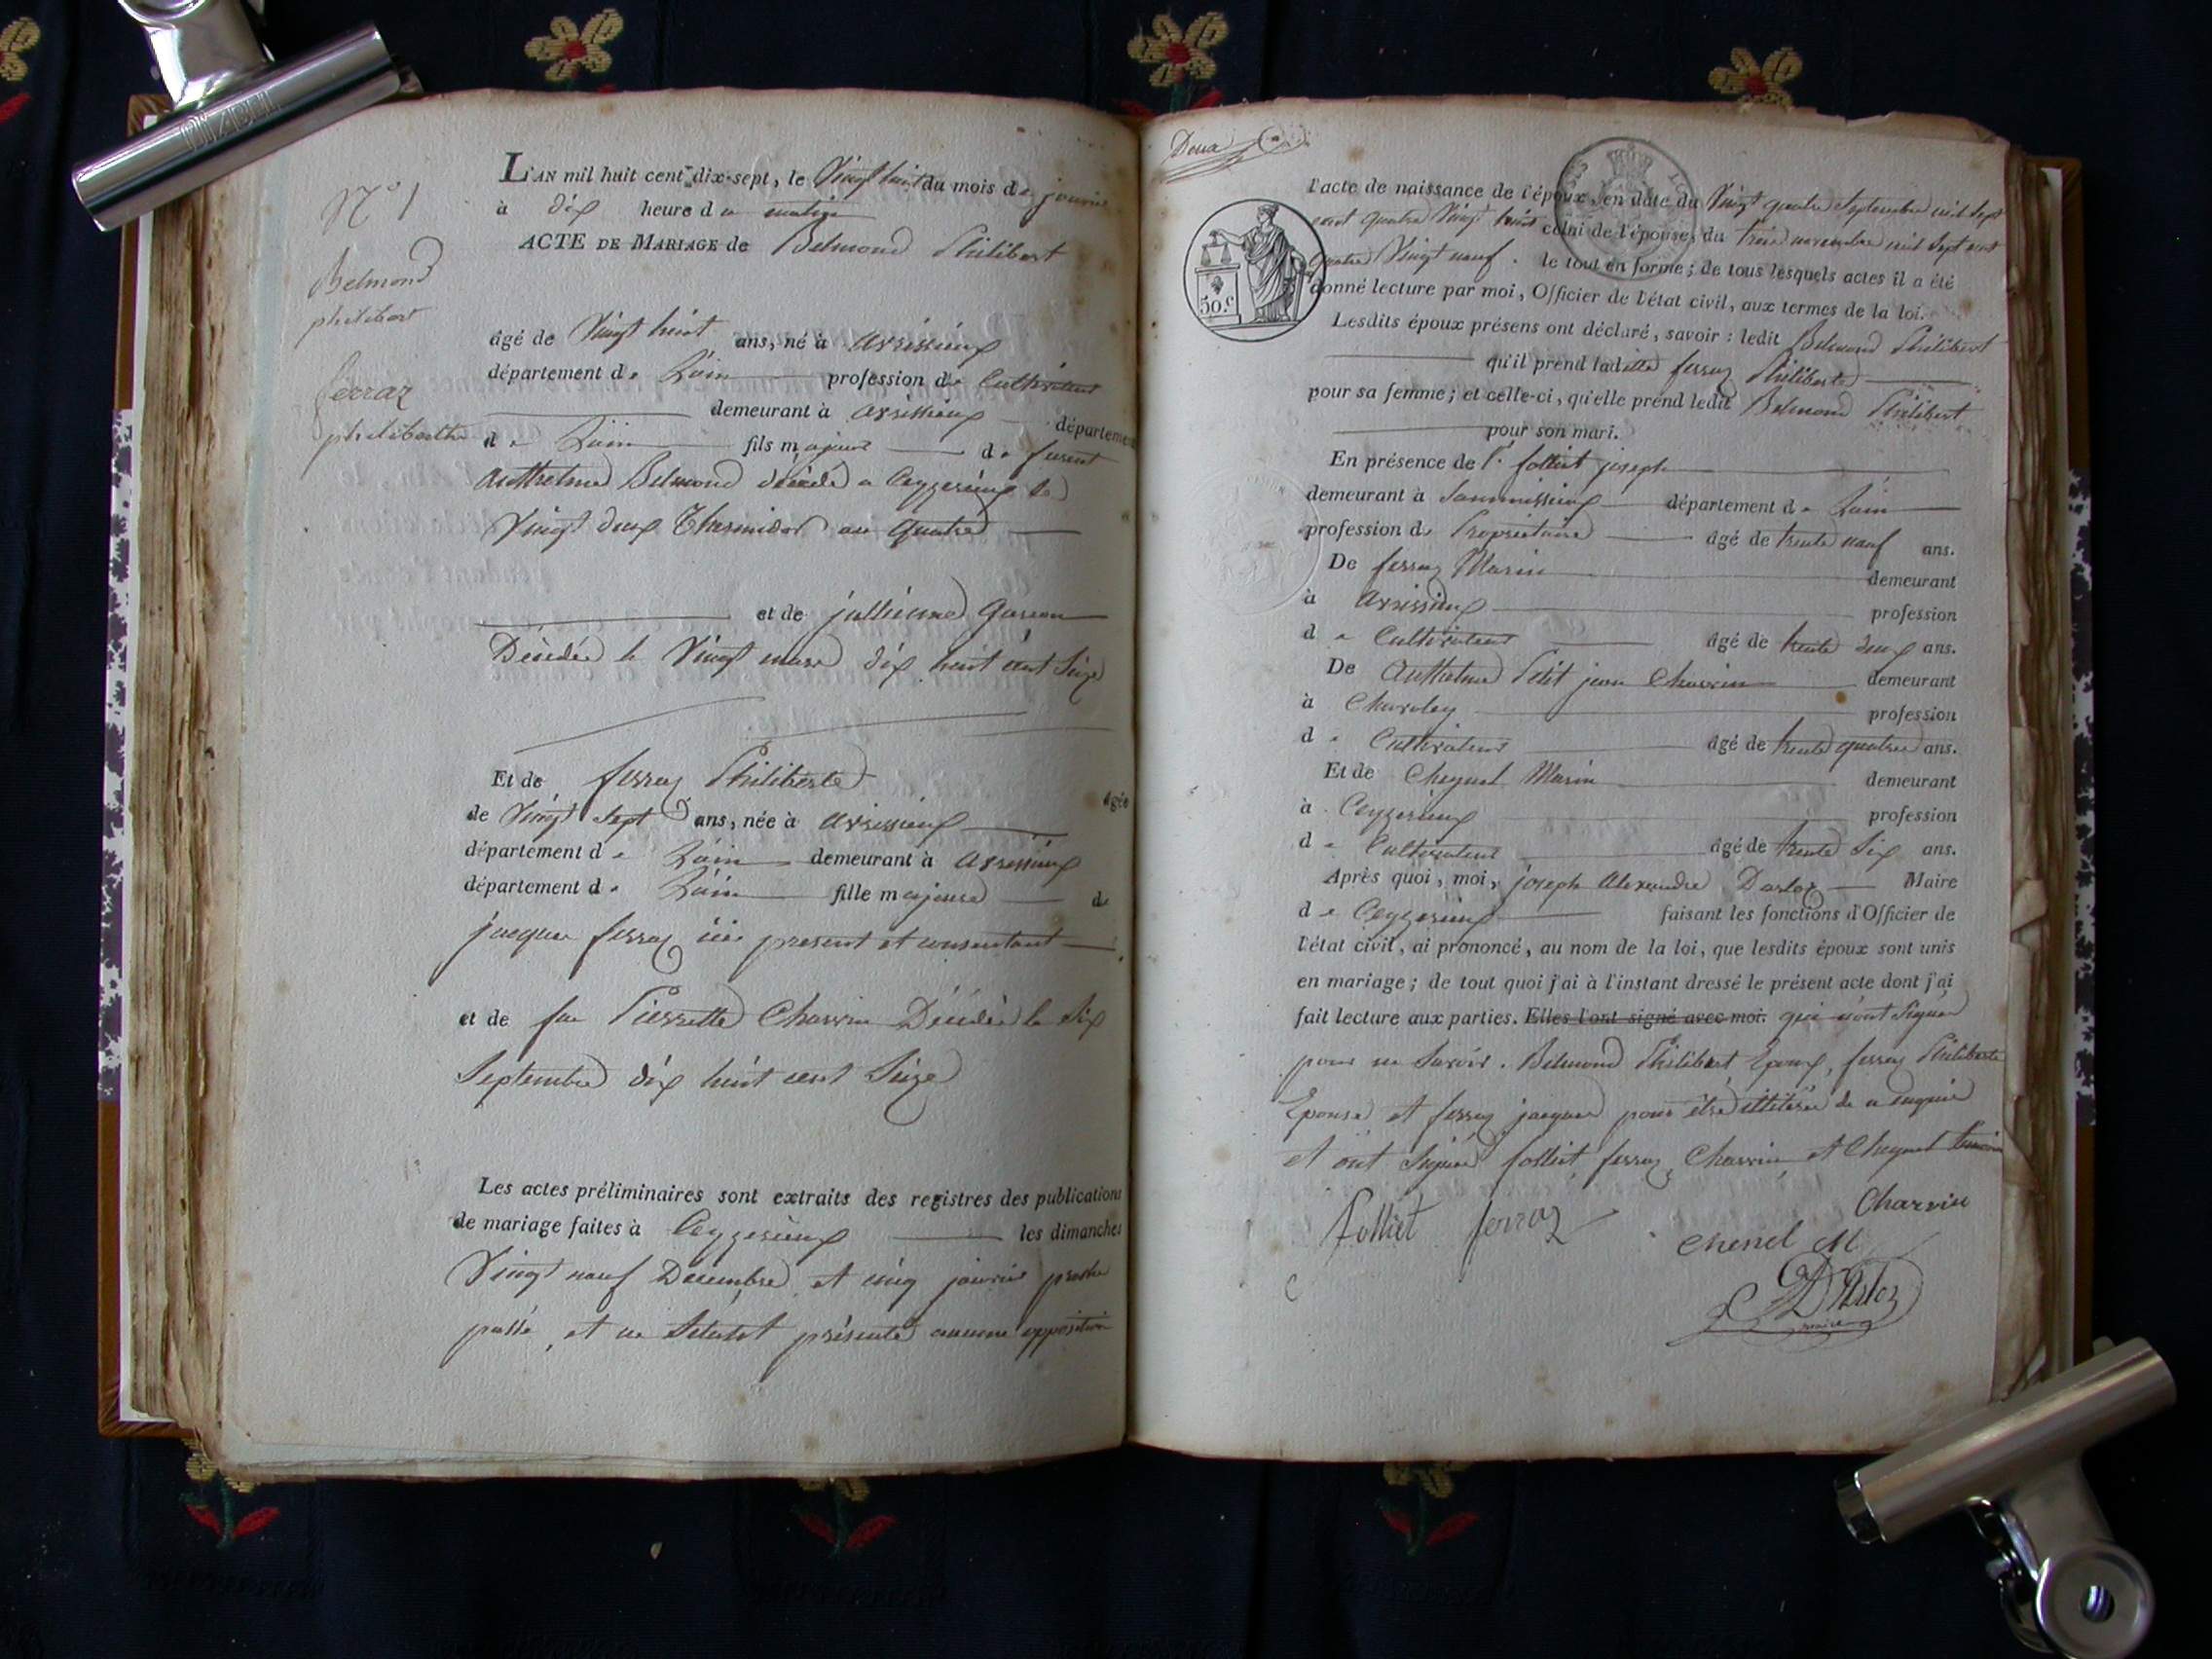 N° 1
Belmond
philibert
ferraz
philiberthe
L'AN mil huit cent dix-sept, le Vingt huit du mois de janvier
à dix heure du matin
ACTE DE MARIAGE de Belmond Philibert
âgé de Vingt huit ans, né à Arrissieux
département de L'ain profession de Cultivateur
demeurant à Arrissieux département
de L'ain fils majeur de furent
Anthelme Belmond décédé a Ceyzerieux le
Vingt deux Thermidor an quatre
et de jullienne
Décédée le Vingt mars dix huit cent Seize
Et de ferraz Philiberte âgée
de Vingt Sept ans, née à Arrissieux
département de L'ain demeurant à Arrissieux
département de L'ain fille majeure de
jacques ferraz ici present et consentant
et de feu Pierrette Charvin Décédée le Six
Septembre dix huit cent Seize
Les actes préliminaires sont extraits des registres des publications
de mariage faites à Ceyzerieux les dimanches
Vingt neuf Decembre et cinq janvier proche
passé, et ne présenté aucune opposition
Doux
l'acte de naissance de l'époux, en date du Vingt quatre Septembre mil Sept
cent quatre Vingt huit celui de l'épouse, du trois novembre mil Sept cent
quatre Vingt neuf. le tout en forme; de tous lesquels actes il a été
50.c
donné lecture par moi, Officier de l'état civil, aux termes de la loi.
Lesdits époux présens ont déclaré, savoir: ledit Belmond Philibert
qu'il prend ladite ferraz Philiberte
pour sa femme; et celle-ci, qu'elle prend ledit Belmond Philibert
pour son mari.
En présence de folliet joseph
demeurant à département de L'ain
profession de Proprietaire âgé de trente neuf ans.
De ferraz Marin demeurant
à Arrissieux profession
de Cultivateur âgé de trente deux ans.
De Anthelme Petit jean Charvin demeurant
à Charoley profession
de Cultivateur âgé de trente quatre ans.
Et de Chequel Marin demeurant
à Ceyzerieux profession
de Cultivateur âgé de trente Six ans.
Après quoi, moi, joseph Alexandre Darloz Maire
de Ceyzerieux faisant les fonctions d'Officier de
l'état civil, ai prononcé, au nom de la loi, que lesdits époux sont unis
en mariage; de tout quoi j'ai à l'instant dressé le présent acte dont j'ai
fait lecture aux parties. Elles l'ont signé avec moi. qui n'ont Signé
pour ne Savoir. Belmond Philibert Epoux, ferraz Philiberte
Epouse et ferraz jacques pour être illiteré de ce enquis
et ont Signé folliet, ferraz, Charvin et Chequel temoins
folliet ferraz Charvin
chenel M
Darloz
maire